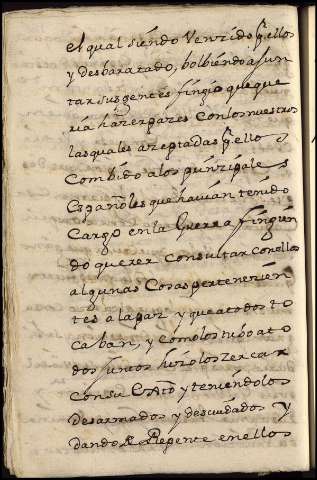 el qual siendo Venzido pr ellos
y desbaratado, bolbiendo a jun
tar sus gentes fingio que que
ria hazer pazes con los nuestros
las quales azeptadas pr ellos
Combido a los prinzipales
Españoles que havian tenido
Cargo en la Guerra fingien
do querer Consultar con ellos
algunas Cosas pertenezien
tes a la paz y que a todos to
caban, y como los tubo a to
dos juntos hizolos zercar
con su y teniendolos
desarmados y descuidados y
dando de Repente en ellos